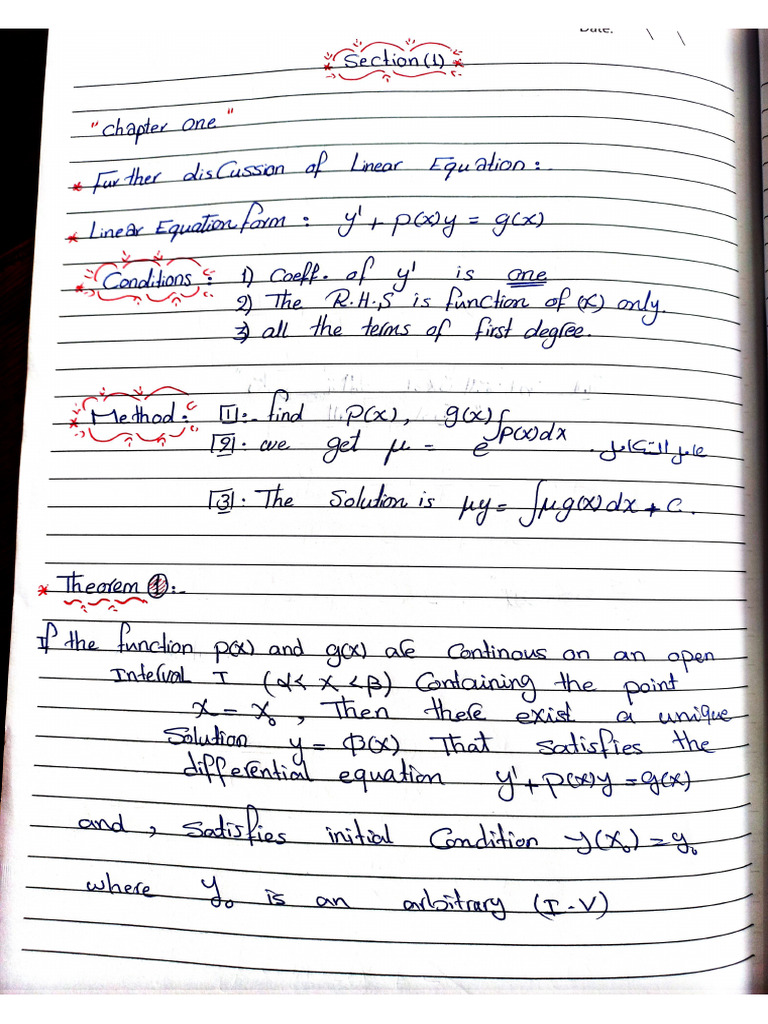 Date: \ \
Section (1)
"chapter one"
* Further disCussion of Linear Equation:
* Linear Equation form: y' + p(x)y = g(x)
Conditions: 1) Coeff. of y' is one
2) The R.H.S is function of (x) only.
3) all the terms of first degree.
Method: 1:- find p(x), g(x)
2: we get μ = e^∫p(x)dx . عامل التكامل
3: The Solution is μy = ∫μg(x)dx + c.
* Theorem 1:-
If the function p(x) and g(x) are Continous on an open
Interval I (α < x < β) Containing the point
x = x₀, Then there exist a unique
Solution y = φ(x) That satisfies the
differential equation y' + p(x)y = g(x)
and, satisfies initial Condition y(x₀) = y₀
where y₀ is an arbitrary (I-V)